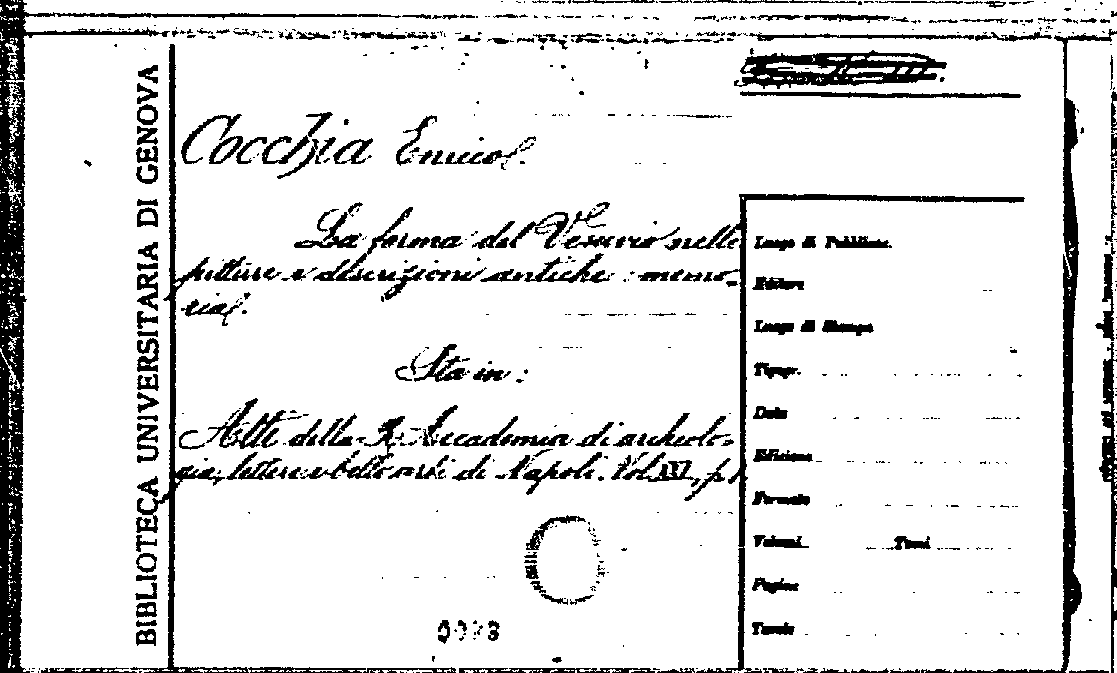 BIBLIOTECA UNIVERSITARIA DI GENOVA
Cocchia Enrico.
La forma del Vesuvio nelle
pitture e descrizioni antiche : memo-
ria.
Sta in :
Atti della R. Accademia di archeolo-
gia, lettere e belle arti di Napoli. Vol. XXI, p. 1
Luogo di Pubblicaz.
Editore
Luogo di Stampa
Tipogr.
Data
Edizione
Formato
Volumi Tomi
Pagine
Tavole